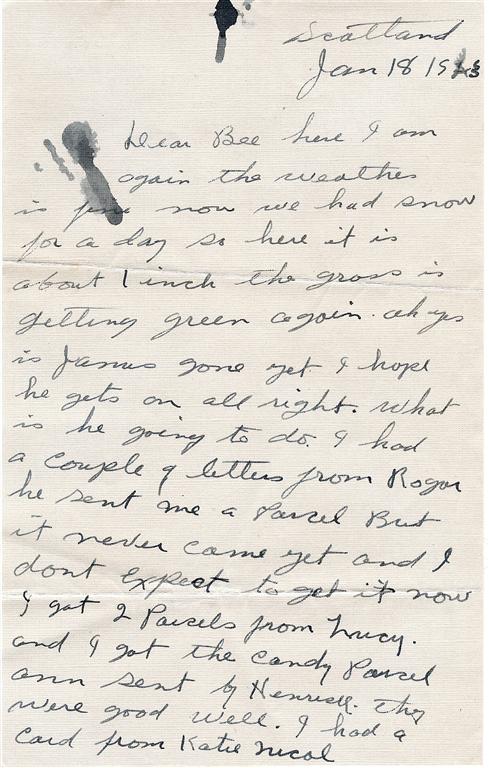 Scotland
Jan 18 19
Dear Bee here I am
again the weather
is fine now we had snow
for a day so here it is
about 1 inch the grass is
getting green again. oh yes
is James gone yet I hope
he gets on all right. What
is he going to do. I had
a couple of letters from Roger
he sent me a Parcel But
it never came yet and I
dont Expect to get it now
I got 2 Parcels from Lucy.
and I got the candy Parcel
ann sent by . They
were good well. I had a
Card from Katie Nicol